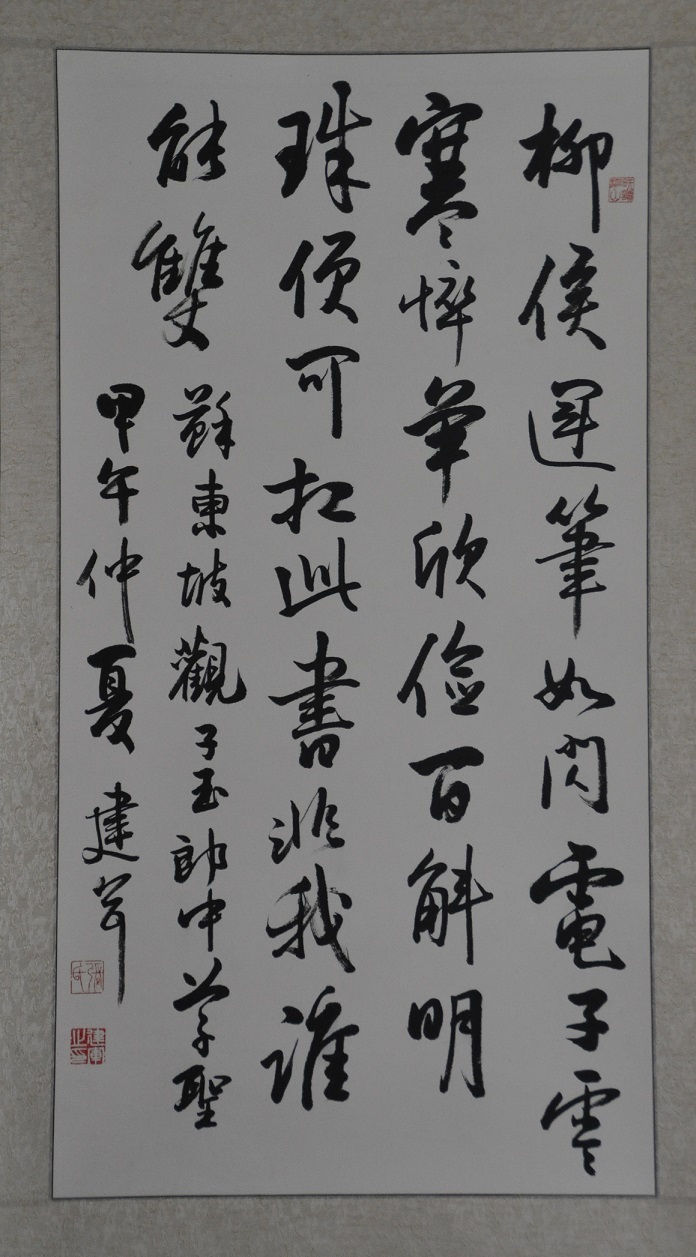 柳侯運筆如閃電子雲
寒悴欣儉百斛明
珠便可扛此書非我誰
能雙 蘇東坡觀子玉郎中草聖
甲午仲夏 建軍
張氏
建軍之印